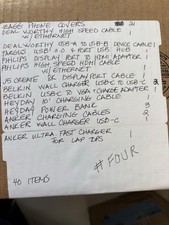 ZAGG PHONE COVERS 21
DEALWORTHY HIGH SPEED CABLE 1
W/ETHERNET
DEALWORTHY USB-A TO USB-B DEVICE CABLE 1
TARGUS USB 3.0 4 PORT USB HUB 1
PHILIPS DISPLAY PORT TO HDMI ADAPTER 1
PHILIPS HIGH SPEED HDMI CABLE 1
W/ETHERNET
J5 CREATE DISPLAY PORT CABLE 1
BELKIN WALL CHARGER USB-C 2
BELKIN USB-C TO VGA + CHARGE ADAPTER 1
HEYDAY 10' CHARGING CABLE 1
HEYDAY POWER BANK 3
ANKER CHARGING CABLES 2
ANKER WALL CHARGER USB-C 1
ANKER ULTRA FAST CHARGER 1
FOR LAP TOPS
#FOUR
40 ITEMS